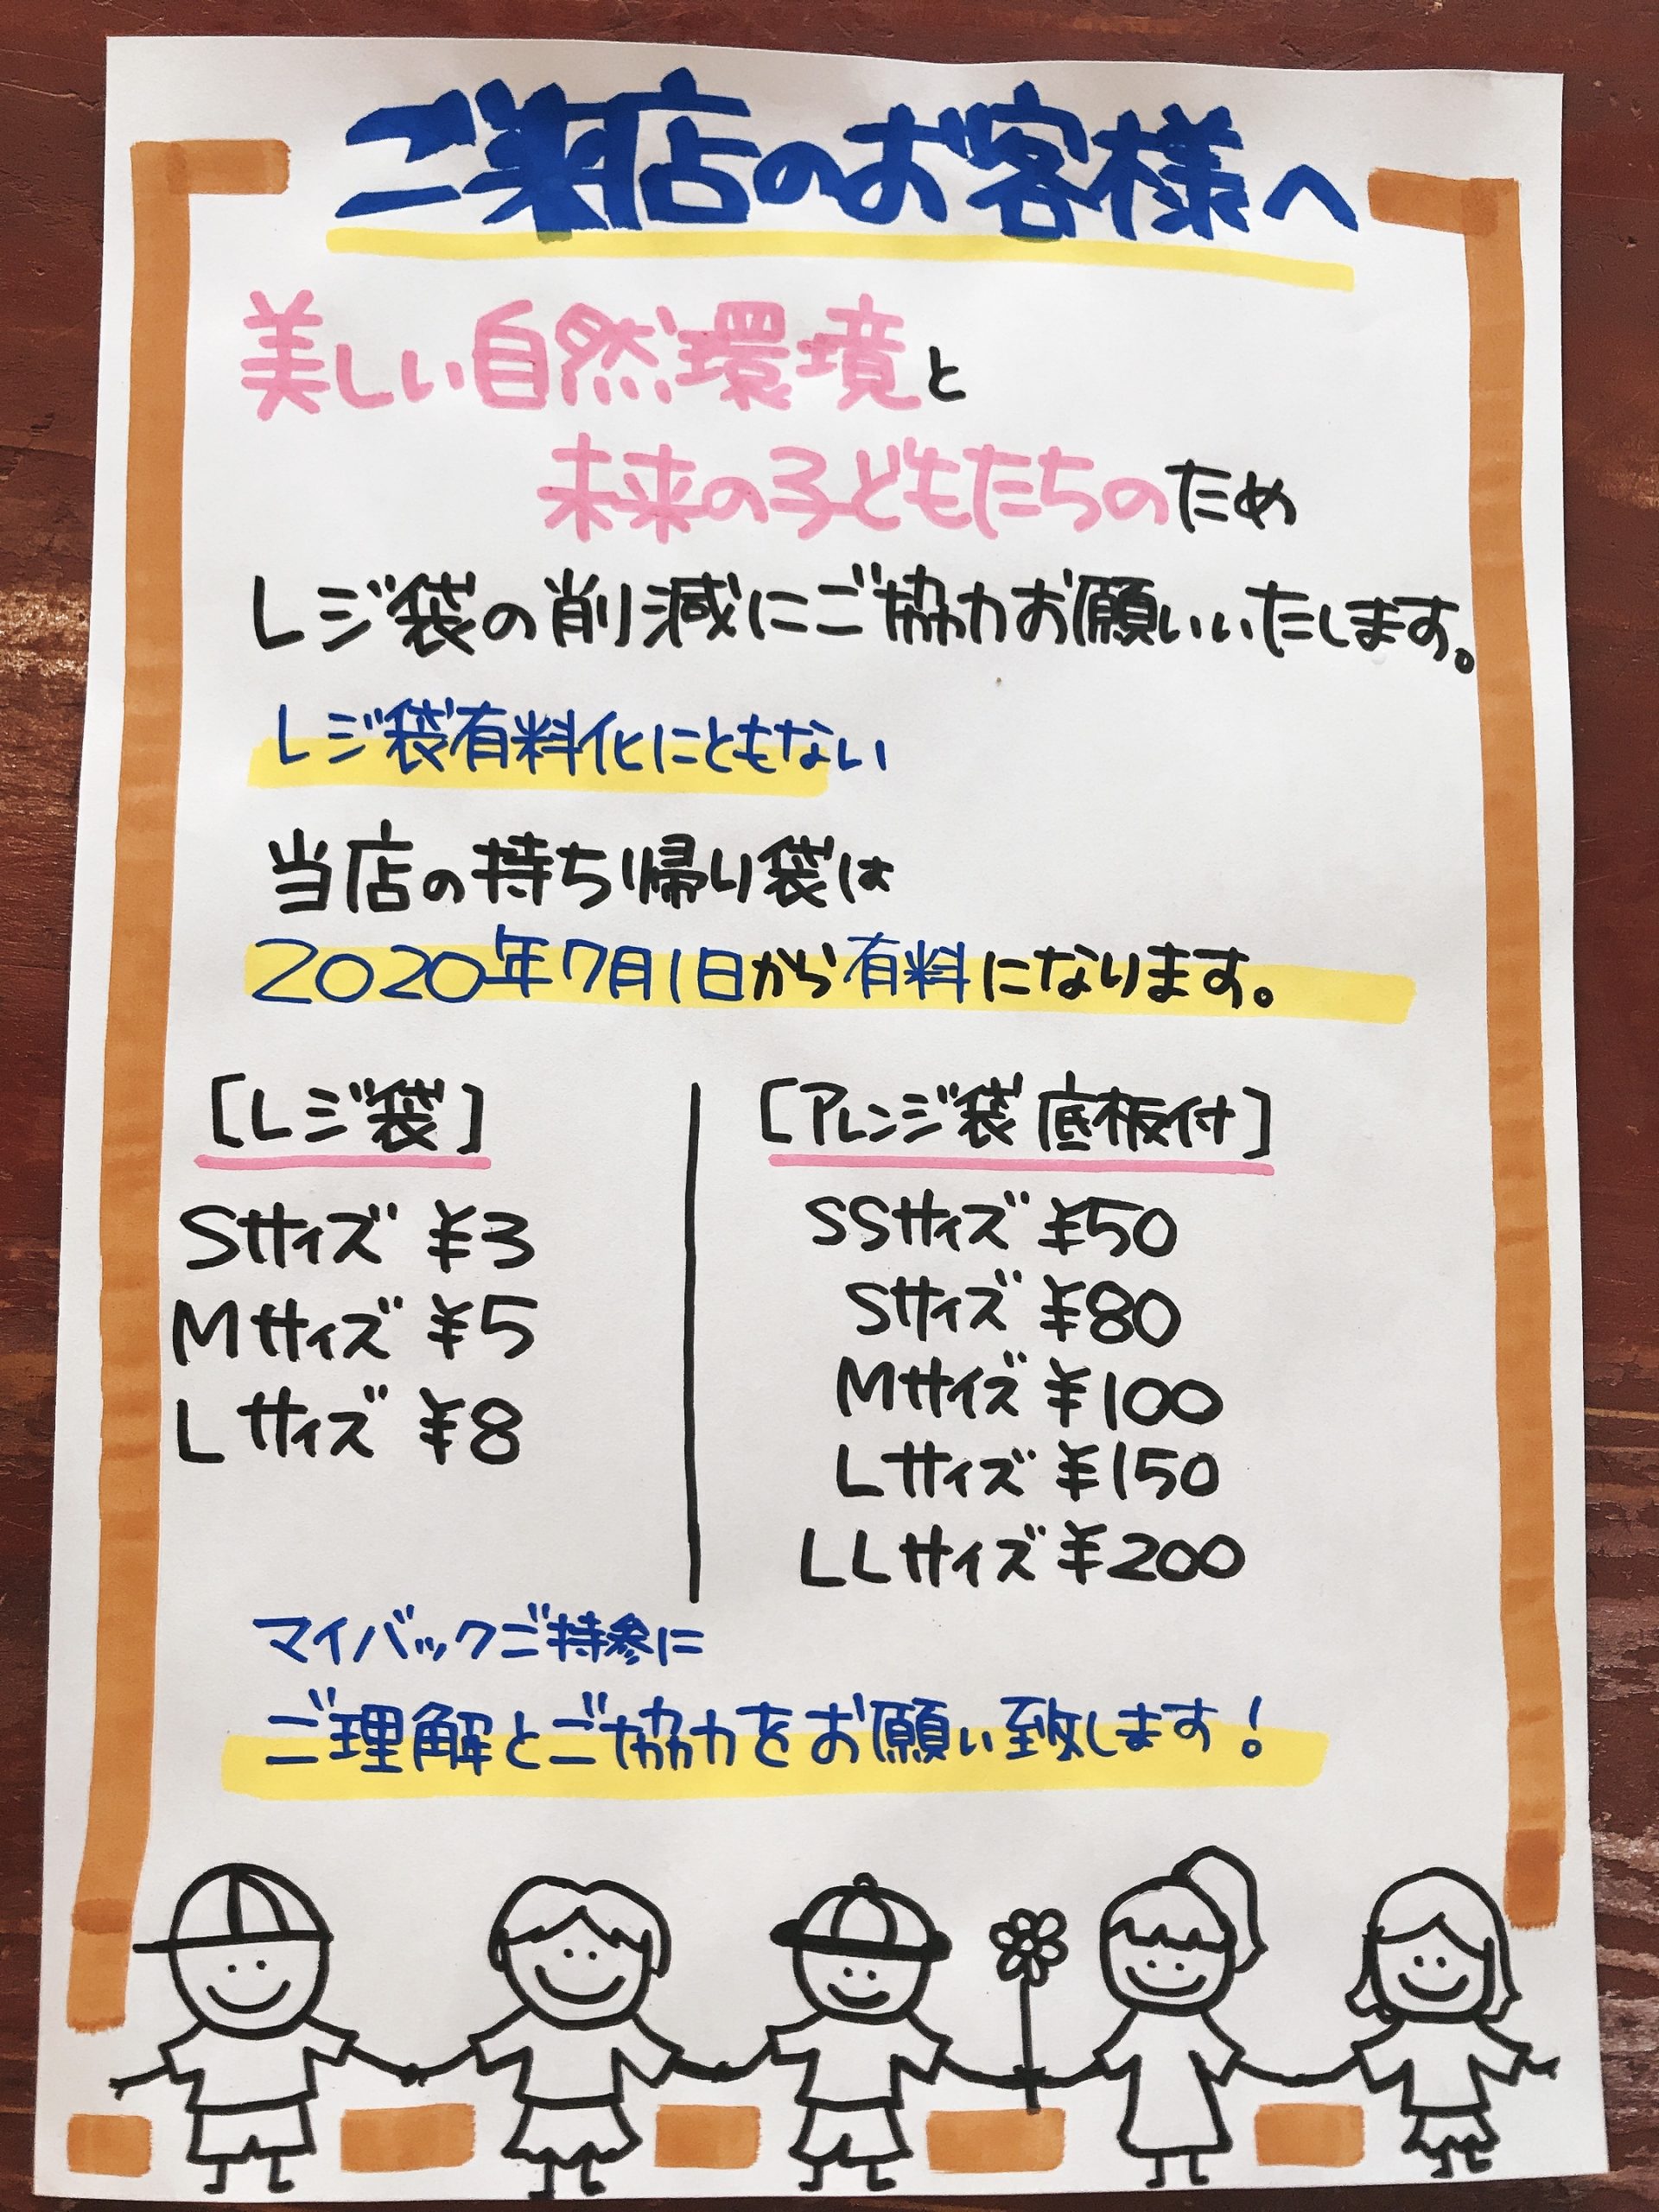 ご来店のお客様へ
美しい自然環境と
未来の子どもたちのため
レジ袋の削減にご協力お願いいたします。
レジ袋有料化にともない
当店の持ち帰り袋は
2020年7月1日から有料になります。
[レジ袋]
Sサイズ ¥3
Mサイズ ¥5
Lサイズ ¥8
[アレンジ袋 底板付]
SSサイズ ¥50
Sサイズ ¥80
Mサイズ ¥100
Lサイズ ¥150
LLサイズ ¥200
マイバックご持参に
ご理解とご協力をお願い致します!